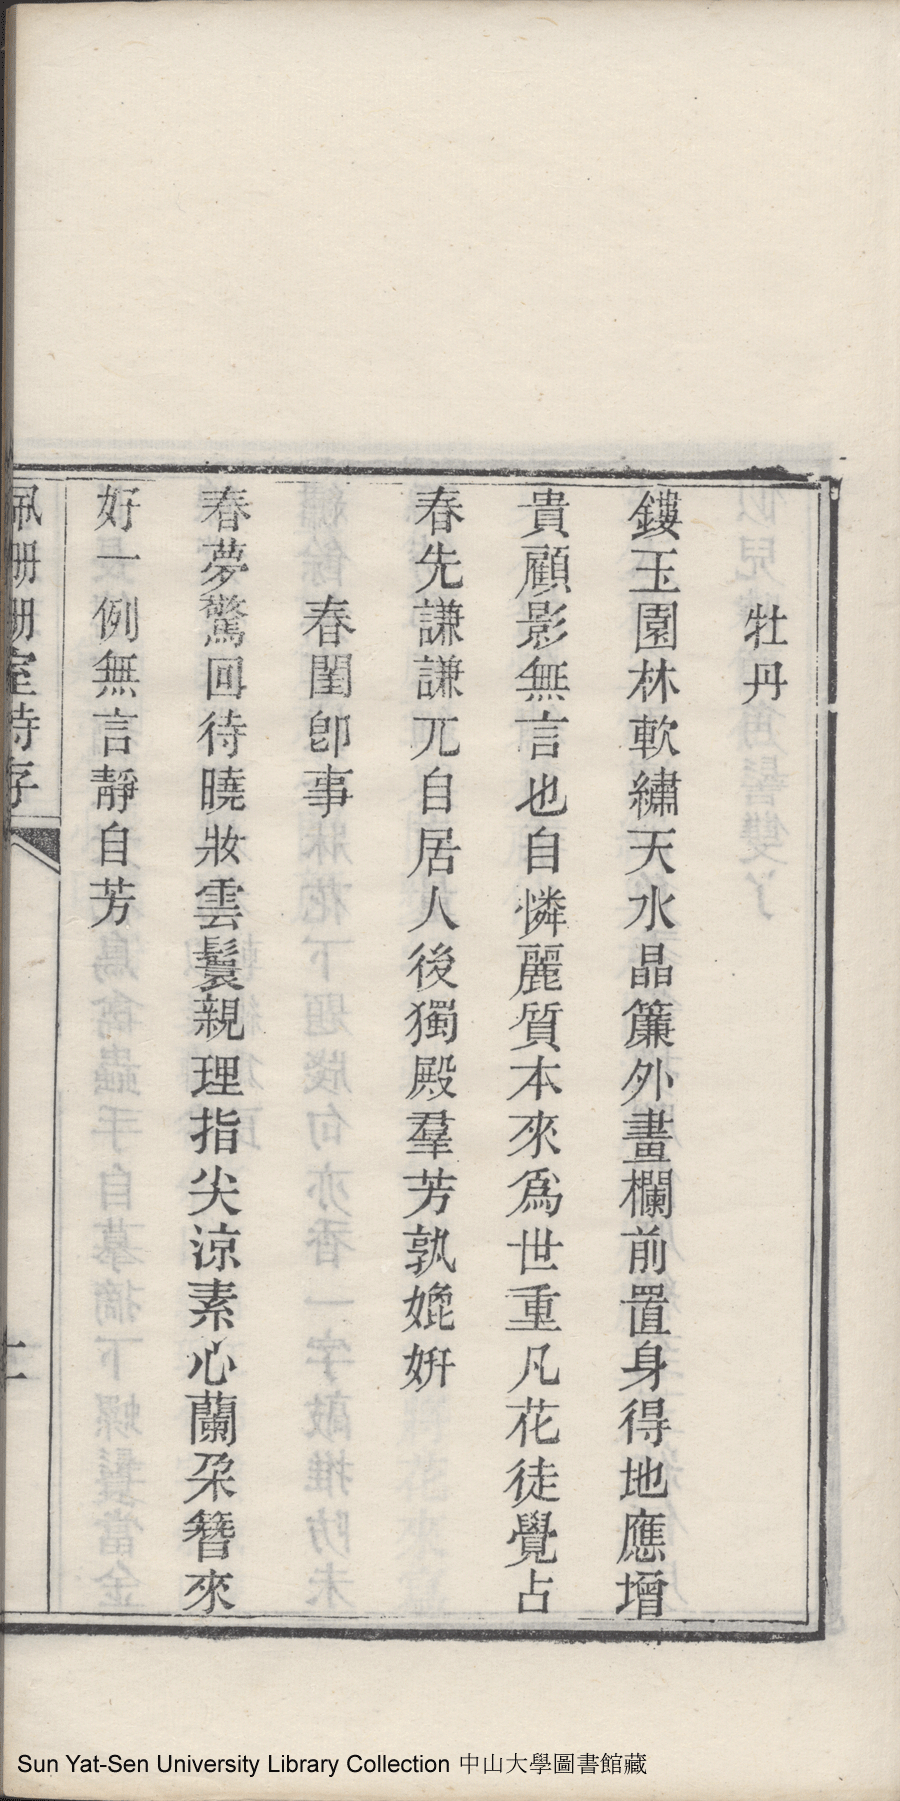 牡丹
鏤玉園林軟繡天水晶簾外畫欄前置身得地應增
貴顧影無言也自憐麗質本來爲世重凡花徒覺占
春先謙謙兀自居人後獨殿羣芳孰媲妍
春閨卽事
春夢驚回待曉妝雲鬟親理指尖涼素心蘭朶簪來
好一例無言靜自芳
佩珊珊室詩存
Sun Yat-Sen University Library Collection 中山大學圖書館藏